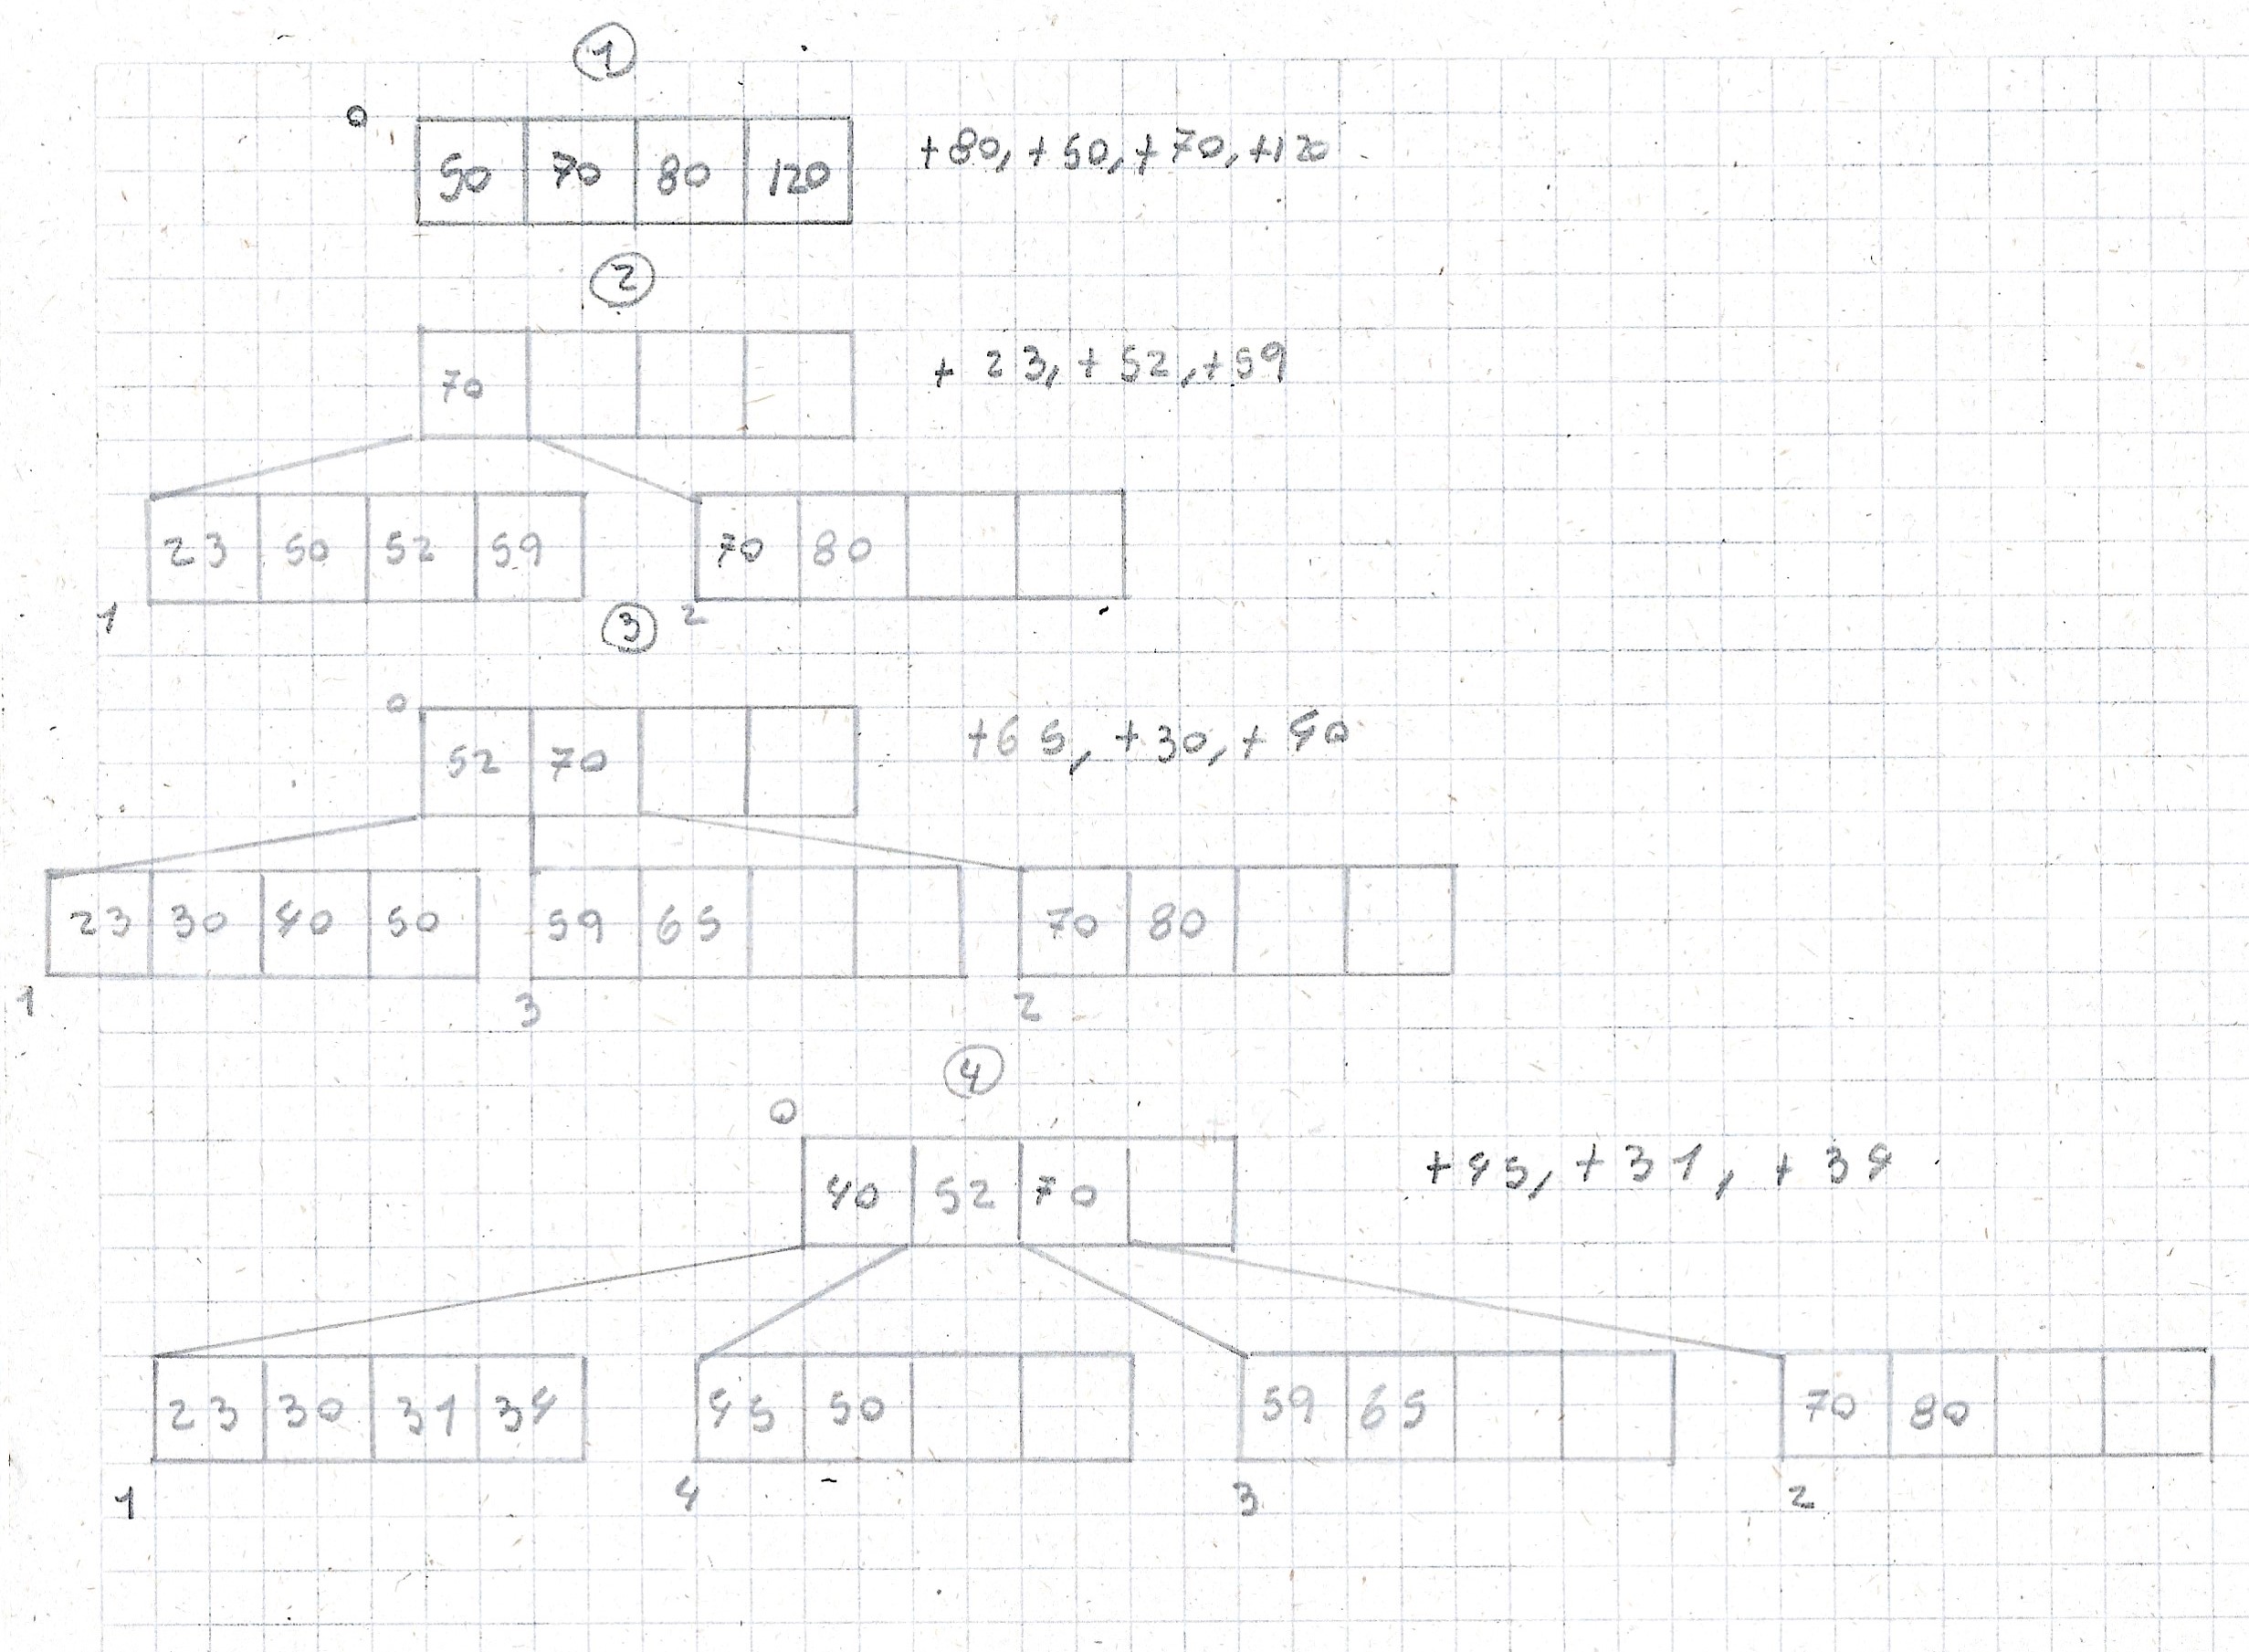 1
0
50 70 80 120 +80, +50, +70, +120
2
70 + 23, +52, +59
23 50 52 59 70 80
1 2
3
0
52 70 +65, +30, +40
23 30 40 50 59 65 70 80
1 3 2
4
0
40 52 70 +45, +31, +34
23 30 31 34 45 50 59 65 70 80
1 4 3 2